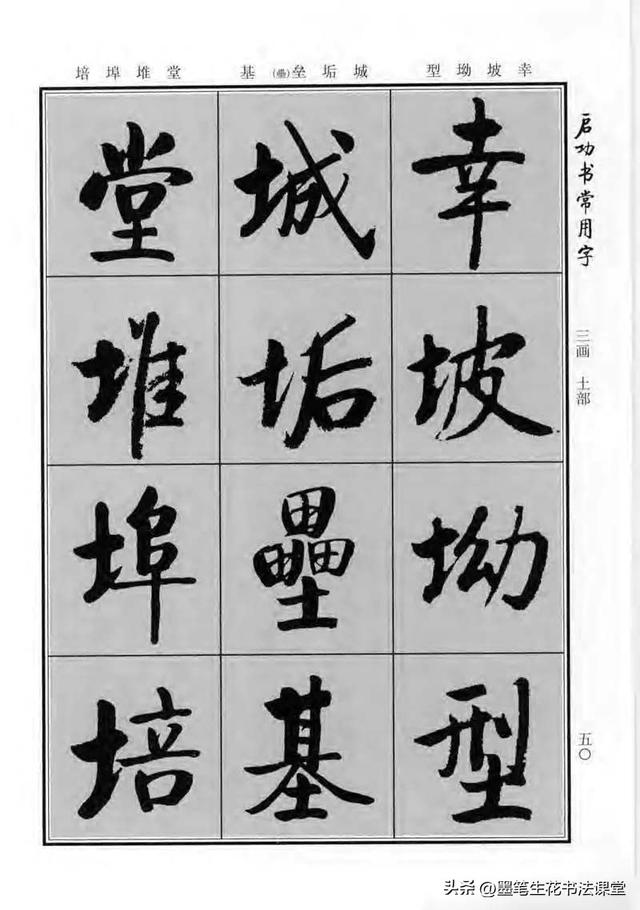 幸坡坳型
城垢垒(壘)基
堂堆埠培
启功书常用字
三画 土部
五〇
幸坡坳型
城垢壘基
堂堆埠培
头条 @墨笔生花书法课堂